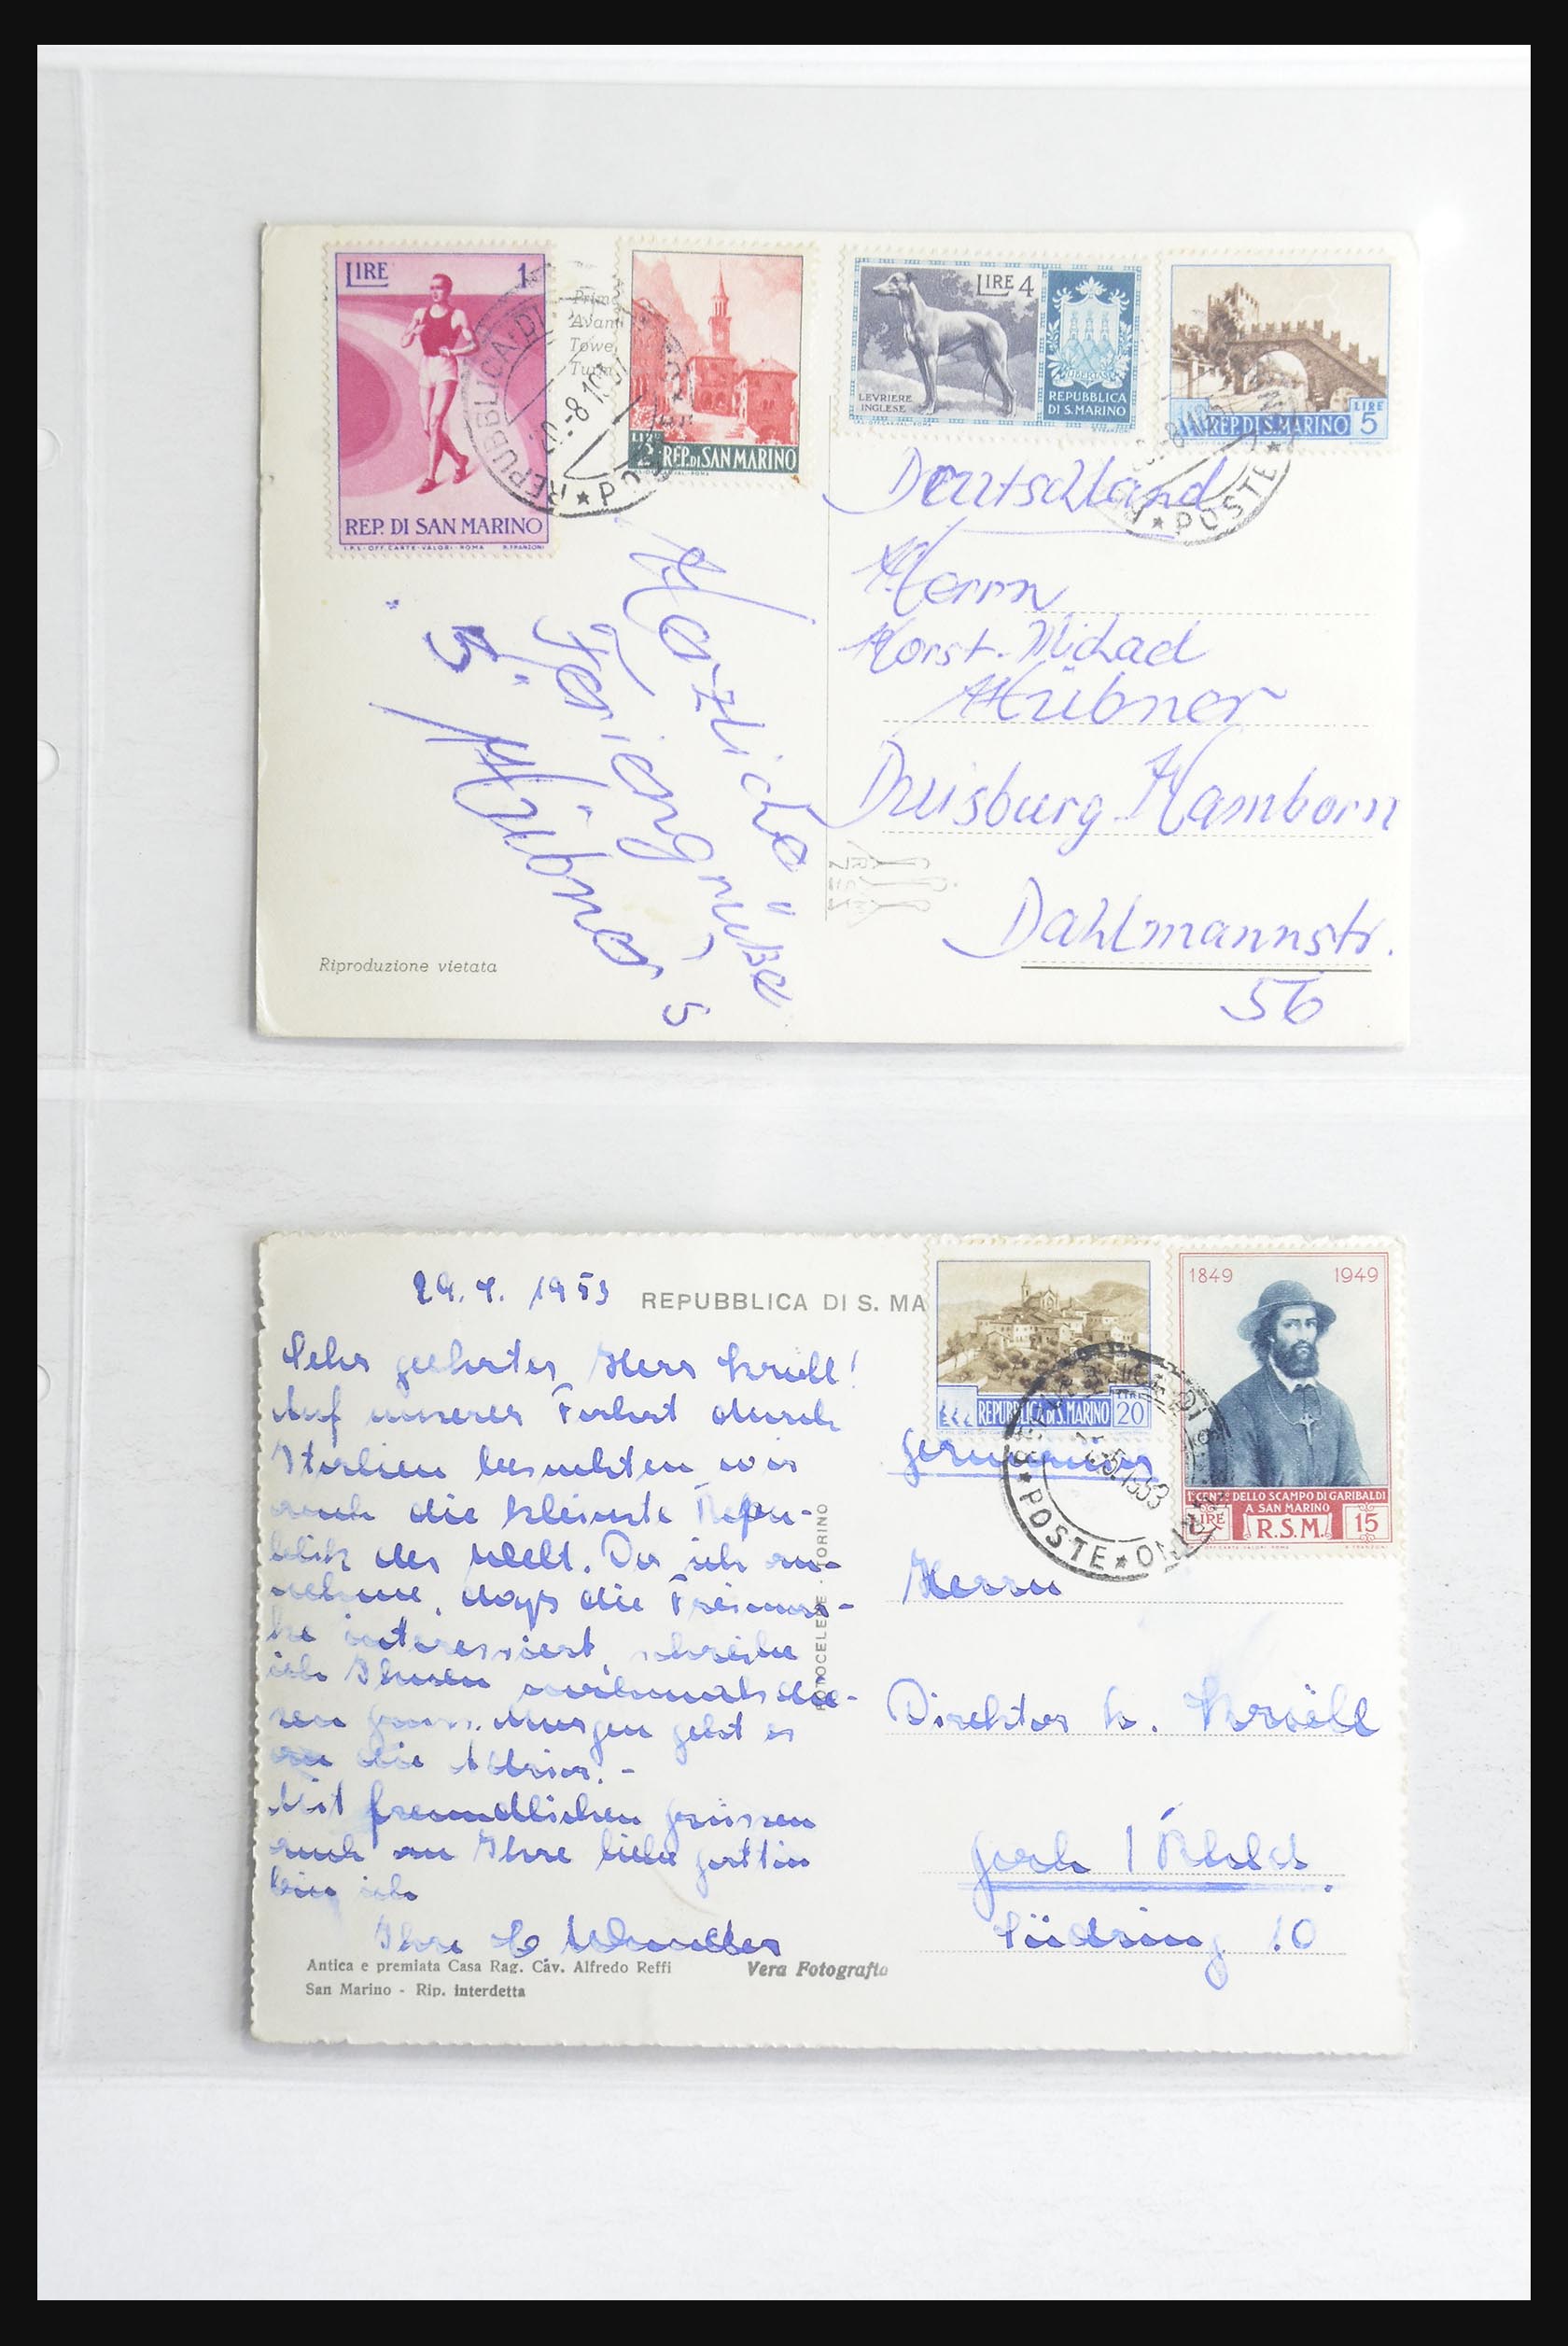 LIRE 1
REP. DI SAN MARINO
I.P.S.-OFF. CARTE-VALORI-ROMA R. FRANZONI
Prim
Avan
Towe
REPUBBLICA DI
REP. DI SAN MARINO
LIRE 4
LEVRIERE
INGLESE
LIBERTAS
REPUBBLICA
DI S. MARINO
REP. DI S. MARINO LIRE 5
★ POSTE ★
Deutschland
Herrn
Horst-Michael
Hübner
Duisburg-Hamborn
Dahlmannstr.
56
Herzliche
Feriengrüße
5 Hübners
Riproduzione vietata
1953
REPUBBLICA DI S. MA
Sehr geehrter Herr Kröll!
Auf unserer Fahrt durch
Italien besuchten wir
auch die kleinste Repu-
blik der Welt. Da ich an-
nehme, dass die Freimar-
ke interessiert, schreibe
ich Ihnen
Morgen geht es
an die Adria. -
Mit freundlichen Grüssen
auch an Ihre liebe Gattin
bin ich
Ihre
REPUBBLICA DI S. MARINO 20
1849 1949
I CENT. DELLO SCAMPO DI GARIBALDI
A SAN MARINO
LIRE R.S.M. 15
★ POSTE ★
1953
Germania
Herrn
Direktor H. Kröll
Goch / Rhld
Südring 10
FOTOCELERE - TORINO
Antica e premiata Casa Rag. Cav. Alfredo Reffi
San Marino - Rip. interdetta
Vera Fotografia